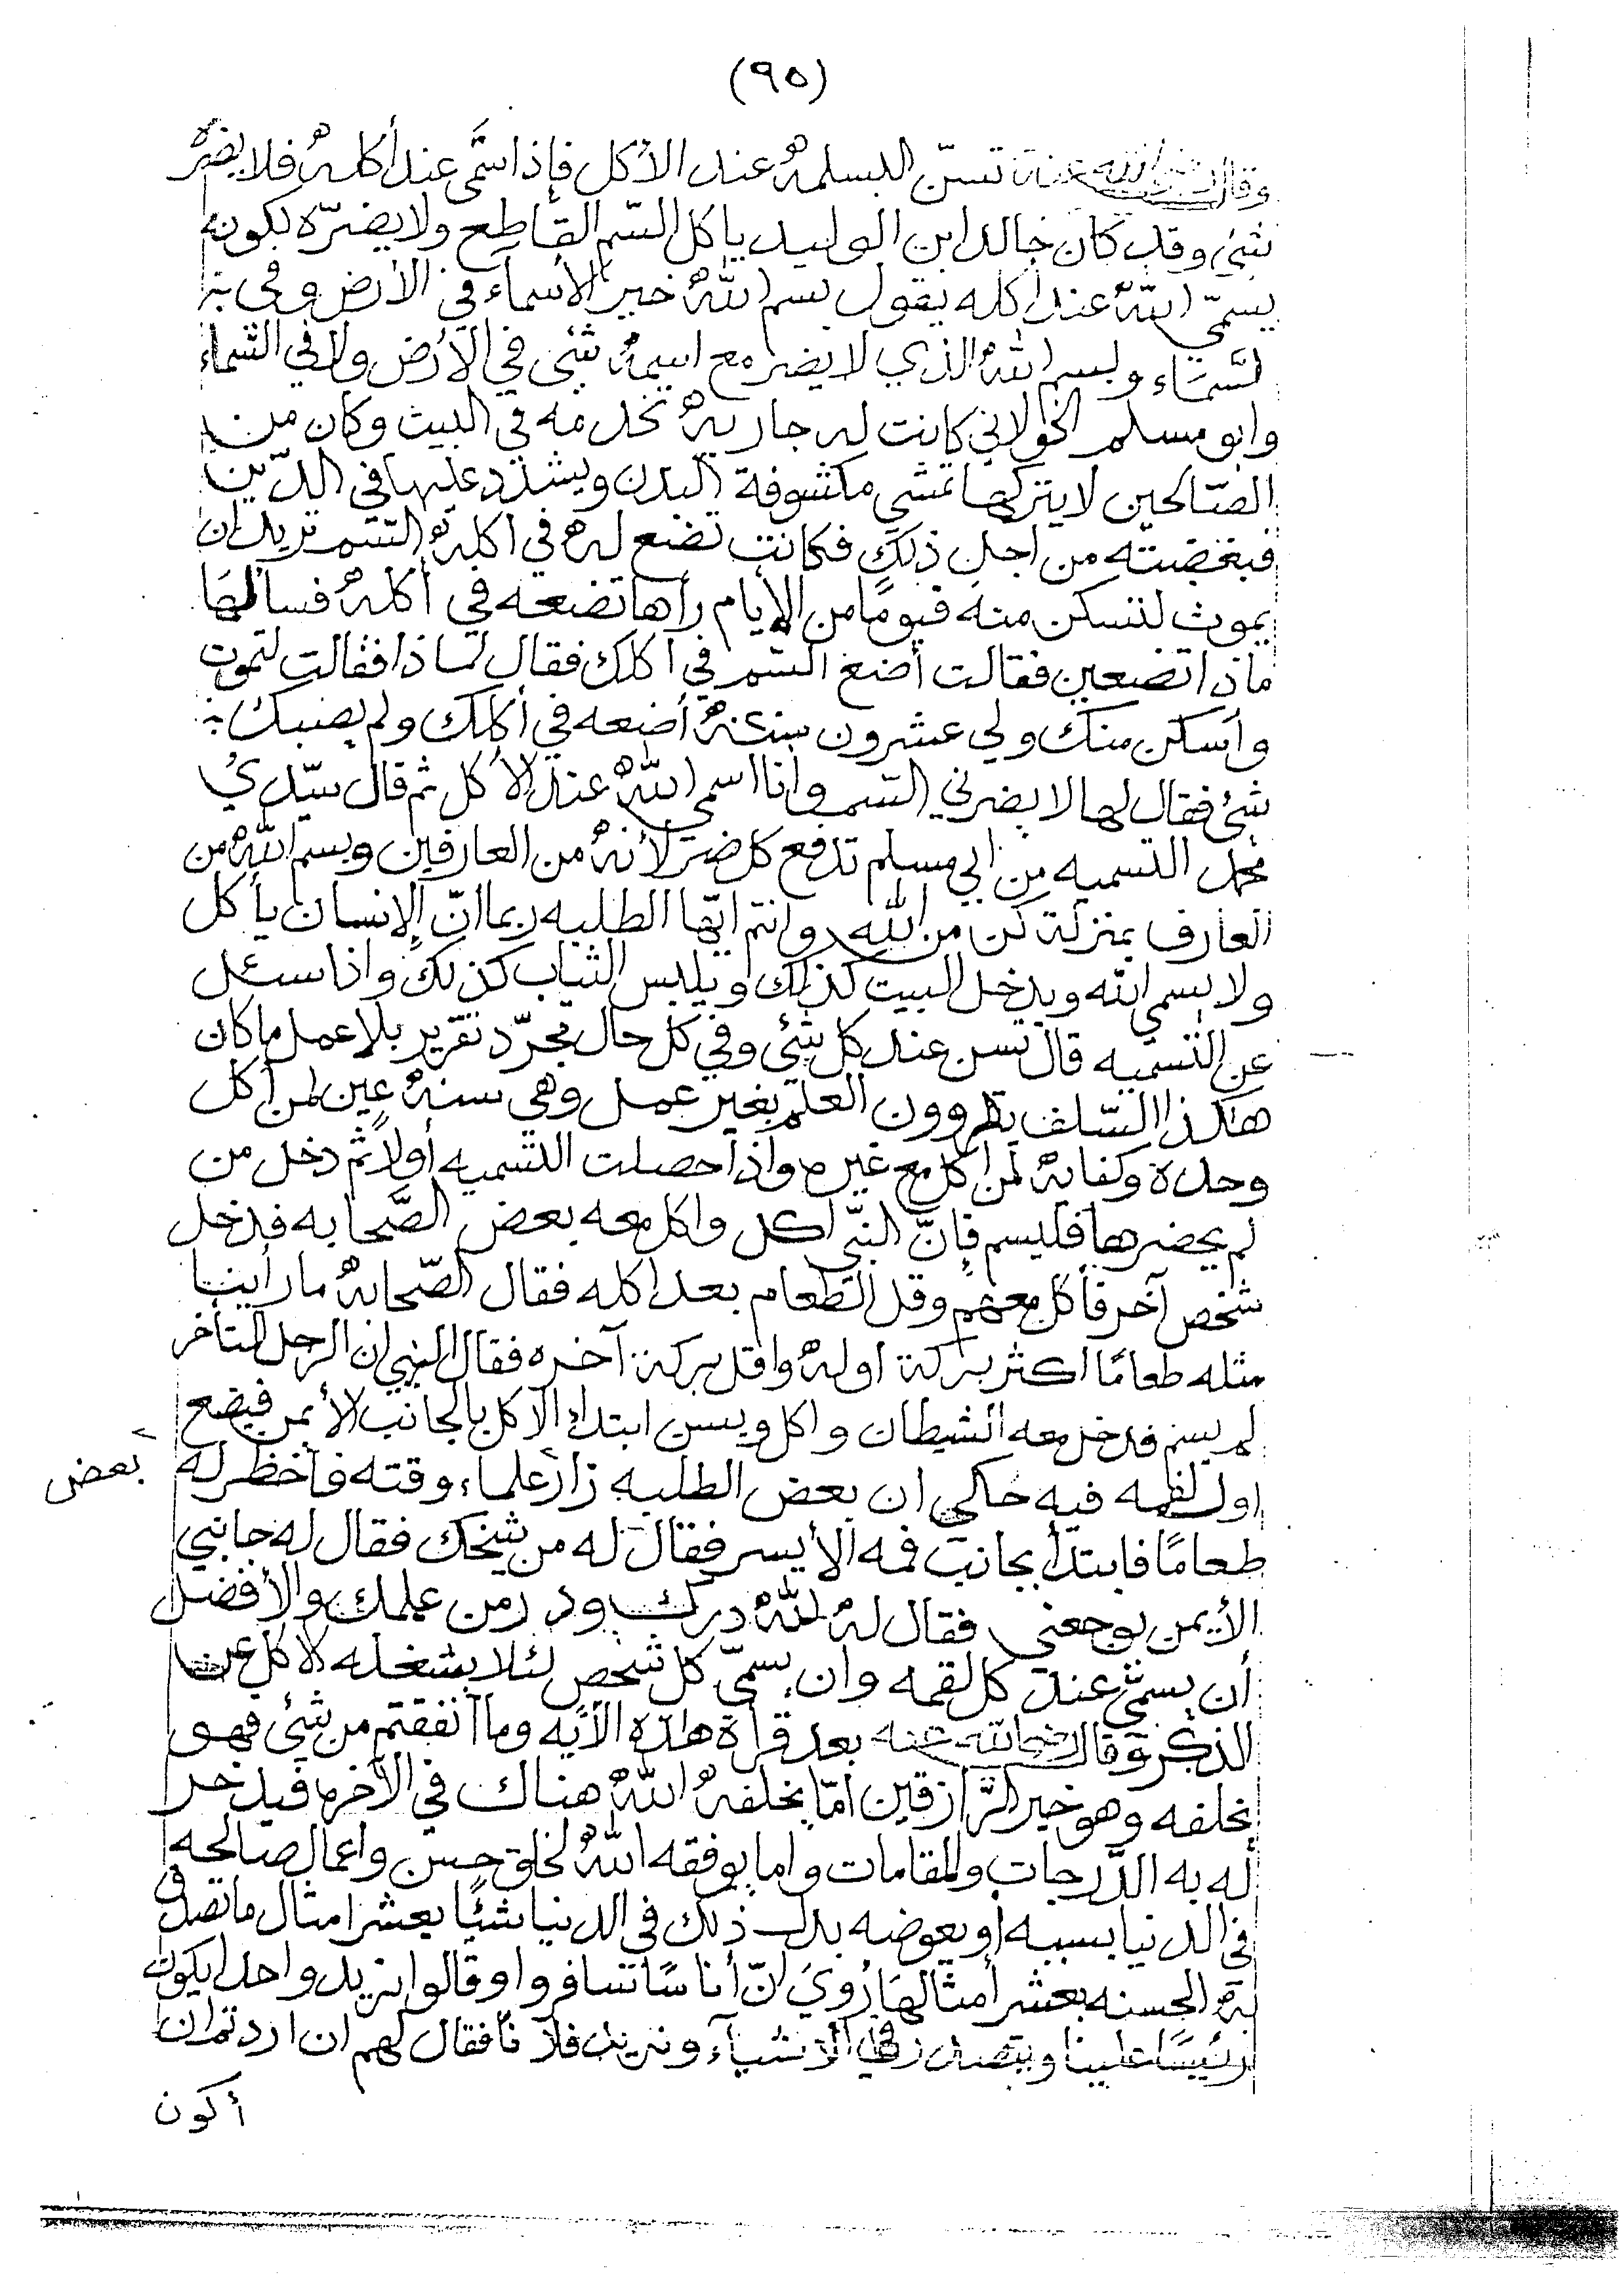 (٩٥)
وقال رضي الله عنه تسنّ البسلمة عند الأكل فإذا سمَّى عند أكله فلا يضرّه
شيء وقد كان خالد ابن الوليد يأكل السّم القاطع ولا يضرّه لكونه
يسمّي الله عند اكله يقول بسم الله خير الأسماء في الأرض وفي
لسَّماء وبسم الله الذي لا يضر مع اسمه شئ في الأرض ولا في السّماء
وابو مسلم الخولاني كانت له جارية تخدمه في البيت وكان من
الصّالحين لا يتركها تمشي مكشوفة البدن ويشدد عليها في الدّين
فبغضته من اجل ذلك فكانت تضع له في اكله السّم تريد ان
يموت لتسكن منه فيومًا من الأيام رأها تضعه في أكله فسألهَا
ماذا تضعين فقالت أضع السّم في اكلك فقال لماذا فقالت لتموت
وأسكن منك ولي عشرون سنة أضعه في أكلك ولم يصبك
شئ فقال لها لا يضرني السم وانا اسمي الله عند الأكل ثم قال سيّدي
محمد التسميه من ابي مسلم تدفع كل ضر لأنه من العارفين وبسم الله من
العارف بمنزلة كن من الله وانتم ايّها الطلبه ربما انّ الإنسان يأكل
ولا يسمي الله ويدخل البيت كذلك ويلبس الثياب كذلك واذا سئل
عن التسميه قال تسن عند كل شئ وفي كل حال مجرّد تقرير بلا عمل ما كان
هكذا السّلف يقروون العلم بغير عمل وهي سنة عين لمن أكل
وحده وكفاية لمن اكل مع غيره واذا حصلت التسميه أولاً ثم دخل من
لم يحضرها فليسم فإنّ النبّي اكل واكل معه بعض الصَّحابه فدخل
شخص آخر فأكل معهم وقل الطعام بعد اكله فقال الصّحابة ما رأينا
مثله طعامًا اكثر بركة اوله واقل بركة آخره فقال النبي ان الرجل المتأخر
لم يسم فدخل معه الشيطان واكل ويسن ابتداء الاكل بالجانب الأيمن فيضع
اول لقمه فيه حكي ان بعض الطلبه زار علماء وقته فأحضر له
بعض
طعامًا فابتدأ بجانب فمه الأيسر فقال له من شيخك فقال له جانبي
الأيمن يوجعني فقال له لله درك ودر من علمك والأفضل
أن يسمّي عند كل لقمه وان يسمّي كل شخص لئلا يشغله الاكل عن
الذكر وقال رضي الله عنه بعد قرأة هذه الآيه وما أنفقتم من شئ فهو
يخلفه وهو خير الرَّازقين امّا يخلفه الله هناك في الآخره فيدخر
له به الدَّرجات والمقامات واما يوفقه الله لخلق حسن واعمال صالحه
في الدنيا بسببه أو يعوضه بدل ذلك في الدنيا شيئًا بعشر امثال ما تصدق
به الحسنه بعشر أمثالهَا رُويَ انّ أناسًا تسافروا وقالوا نريد واحدا يكون
رئيسًا علينا ويتصدر في الأشياء ونريد فلانًا فقال لهم ان اردتم ان
أكون